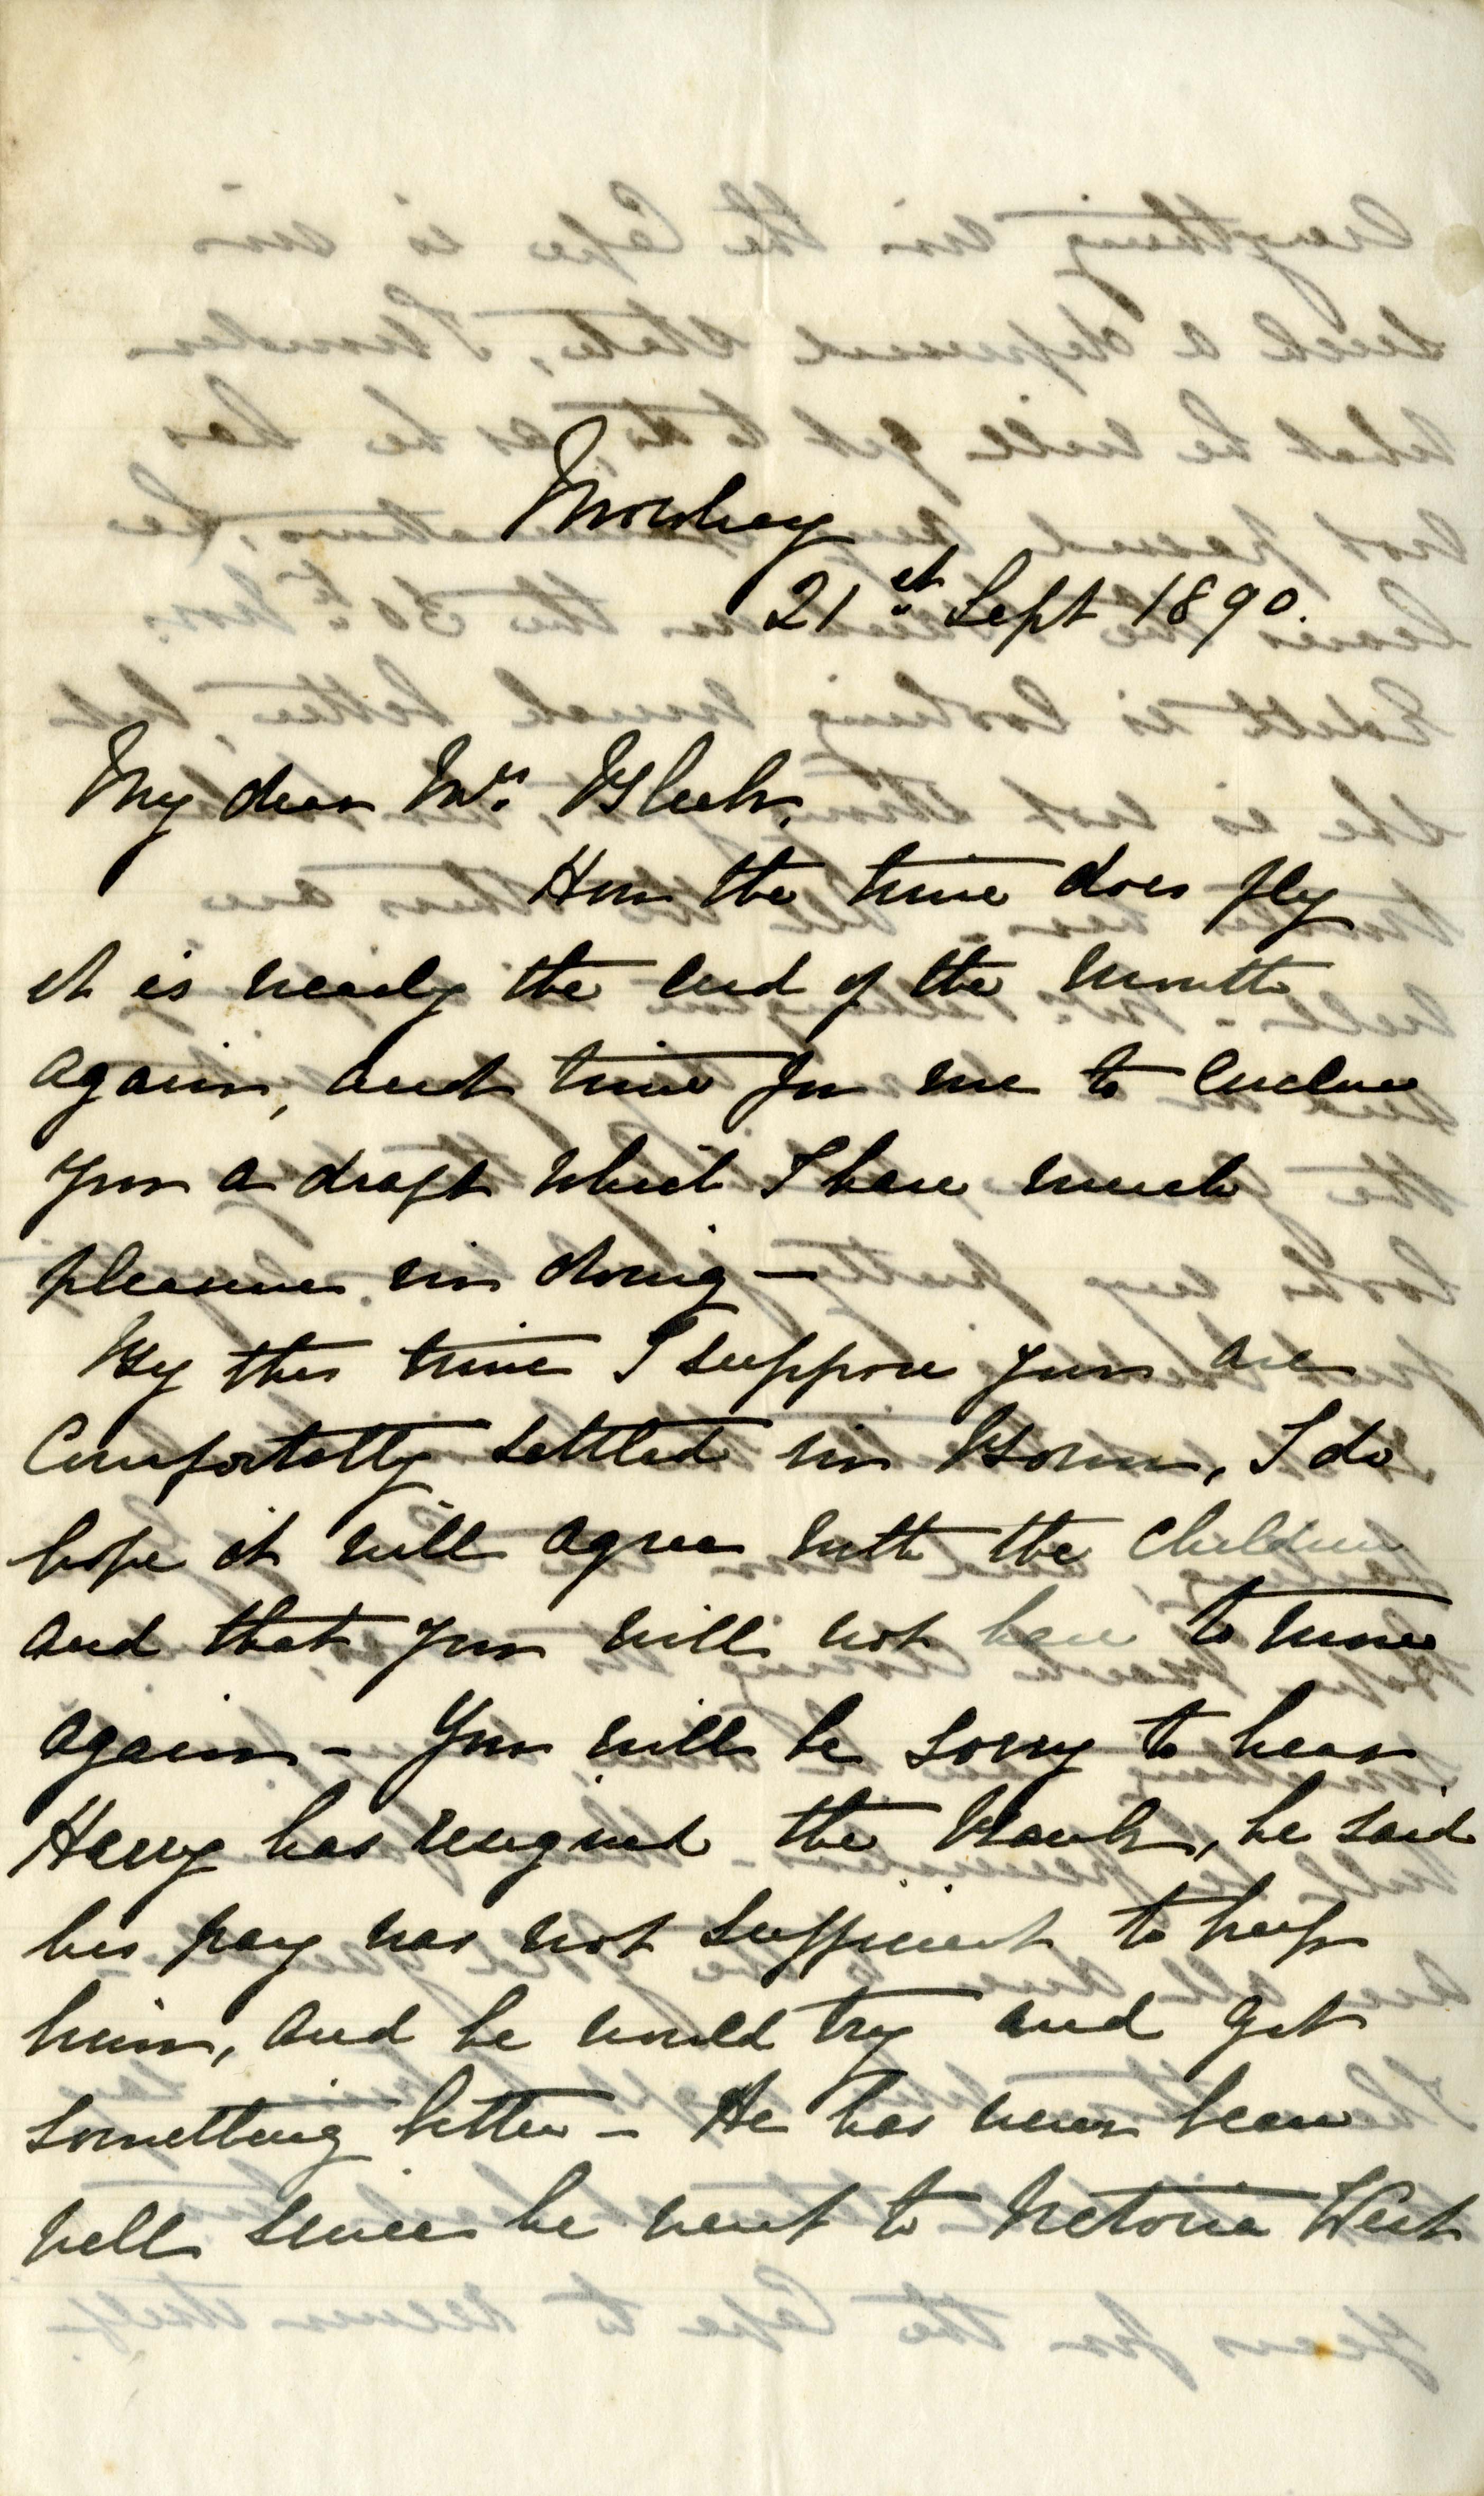 Mowbray
21st Sept 1890.
My dear Mrs Bleek,
How the time does fly
it is nearly the end of the month
again, and time for me to enclose
you a draft which I have much
pleasure in doing —
By this time I suppose you are
Comfortably settled in Bonn, I do
hope it will agree with the children
and that you will not have to move
again – You will be sorry to hear
Harry has resigned the Bank, he said
his pay was not sufficient to keep
him, and he would try and get
something better – He has never been
well since he went to Victoria West